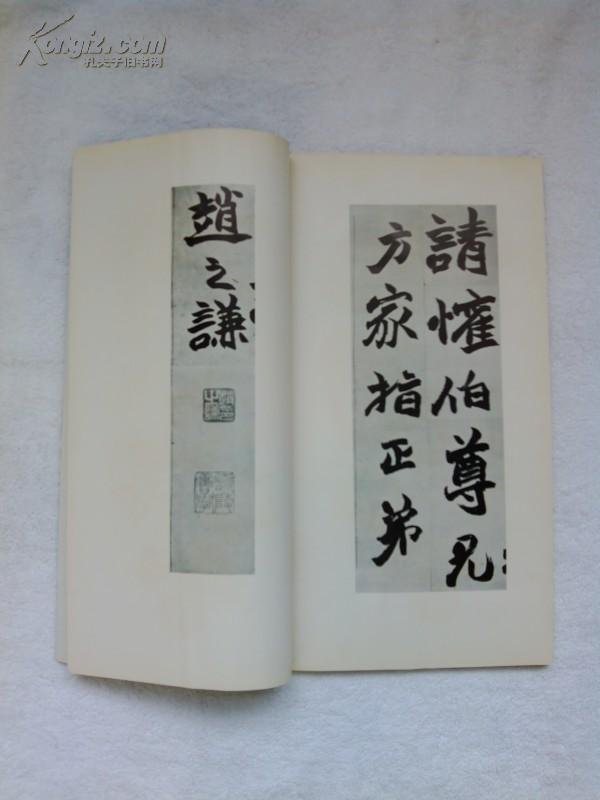 Kongfz.com
孔夫子旧书网
請懽伯尊兄
方家指正弟
趙之謙